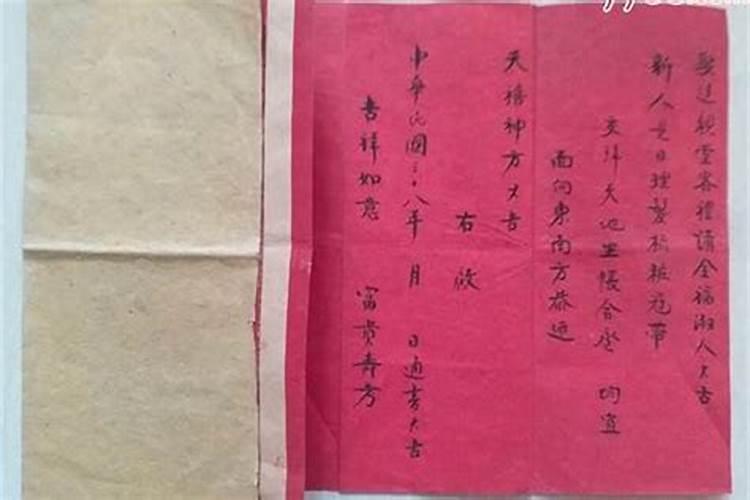 娶送親堂客禮請全福淑人大吉
新人是日理髮梳粧冠帶
交拜天地坐帳合卺 均宜
面向東南方恭迎
天禧神方大吉
右啟
中華民國三十八年 月 日通書大吉
吉祥如意 富貴壽方